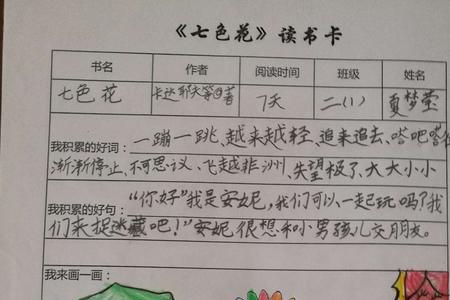 《七色花》读书卡
书名 作者 阅读时间 班级 姓名
七色花 卡达耶夫等著 7天 二(1) 夏梦莹
我积累的好词：一蹦一跳、越来越轻、追来追去、嗒吧嗒
渐渐停止、不可思议、飞越非洲、失望极了、大大小小
我积累的好句："你好"我是安妮，我们可以一起玩吗？我
们来捉迷藏吧！"安妮很想和小男孩儿交朋友。
我来画一画：